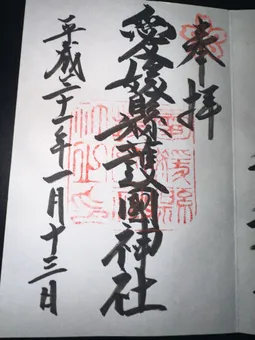 奉拝
愛媛縣護國神社
平成二十一年一月十三日